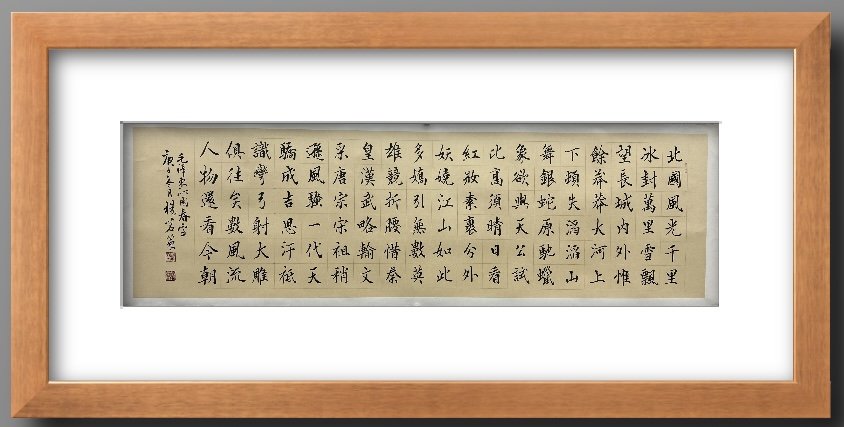 北國風光千里
冰封萬里雪飄
望長城内外惟
餘莽莽大河上
下頓失滔滔山
舞銀蛇原馳蠟
象欲與天公試
比高須晴日看
紅妝素裹分外
妖嬈江山如此
多嬌引無數英
雄競折腰惜秦
皇漢武略輸文
采唐宗宋祖稍
遜風騷一代天
驕成吉思汗祗
識彎弓射大雕
俱往矣數風流
人物還看今朝
毛澤東沁園春雪
庚子冬月楊